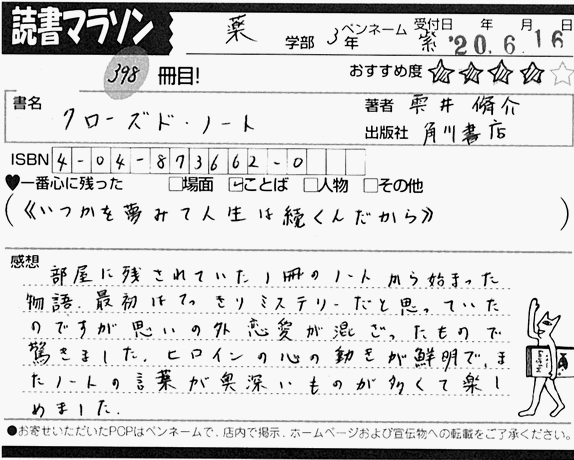 読書マラソン
薬 学部 3年 ペンネーム 紫 受付日 '20.6.16 年 月 日
398 冊目! おすすめ度 ★★★★☆
書名 クローズド・ノート
著者 雫井 脩介
出版社 角川書店
ISBN 4-04-873662-0
♥一番心に残った □場面 ☑ことば □人物 □その他
(《いつかを夢みて人生は続くんだから》)
感想
部屋に残されていた1冊のノートから始まった
物語。最初はてっきりミステリーだと思っていた
のですが思いの外恋愛が混ざったもので
驚きました。ヒロインの心の動きが鮮明で、ま
たノートの言葉が奥深いものが多くて楽し
めました。
●お寄せいただいたPCPはペンネームで、店内で掲示、ホームページおよび宣伝物への転載をご了承ください。